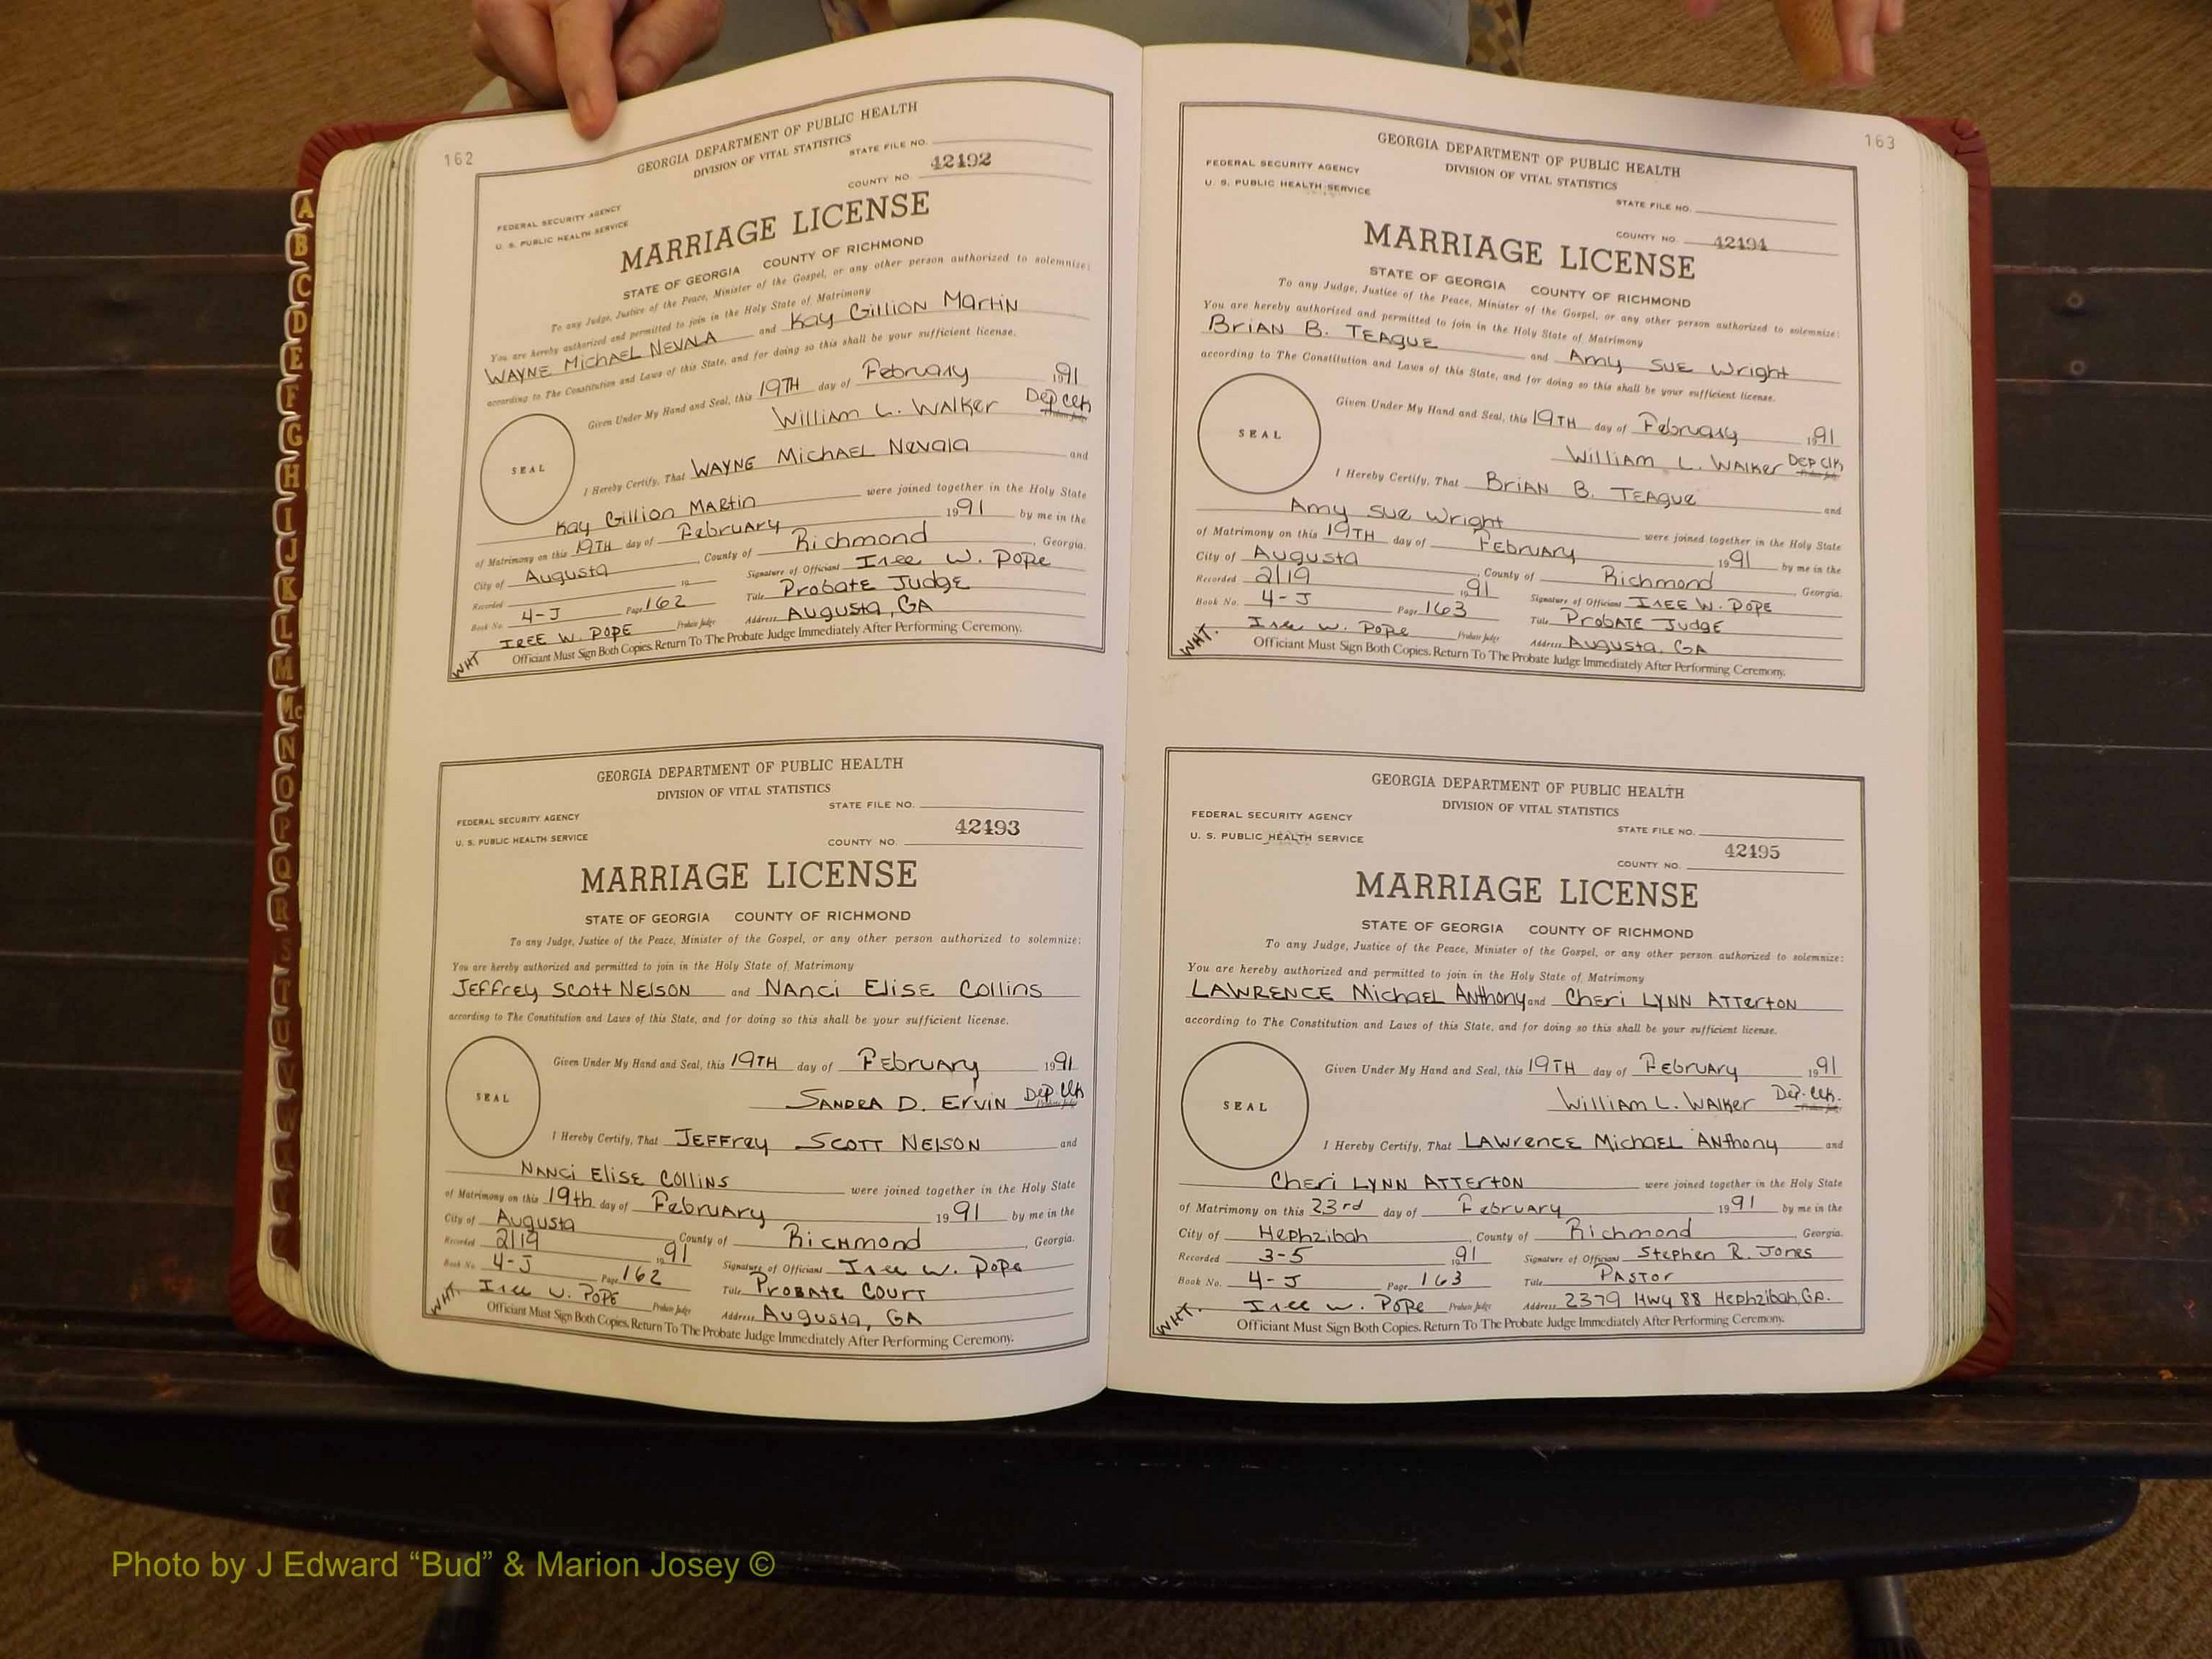 162
GEORGIA DEPARTMENT OF PUBLIC HEALTH
DIVISION OF VITAL STATISTICS
STATE FILE NO.
42492
COUNTY NO.
FEDERAL SECURITY AGENCY
U. S. PUBLIC HEALTH SERVICE
MARRIAGE LICENSE
STATE OF GEORGIA COUNTY OF RICHMOND
To any Judge, Justice of the Peace, Minister of the Gospel, or any other person authorized to solemnize:
You are hereby authorized and permitted to join in the Holy State of Matrimony
WAYNE MichAEL NEVALA and Kay Gillion Martin
according to The Constitution and Laws of this State, and for doing so this shall be your sufficient license.
Given Under My Hand and Seal, this 19TH day of February 1991
William L. Walker Dep Clk
SEAL
I Hereby Certify, That WAYNE MichAEL Nevala and
Kay Gillion Martin were joined together in the Holy State
of Matrimony on this 19TH day of February 1991 by me in the
City of Augusta, County of Richmond, Georgia.
Recorded 19 Signature of Officiant Isee W. Pope
Book No. 4-J Page 162 Title Probate Judge
IREE W. POPE Probate Judge Address Augusta, GA
WHT
Officiant Must Sign Both Copies. Return To The Probate Judge Immediately After Performing Ceremony.
GEORGIA DEPARTMENT OF PUBLIC HEALTH
DIVISION OF VITAL STATISTICS
STATE FILE NO.
FEDERAL SECURITY AGENCY
42493
U. S. PUBLIC HEALTH SERVICE
COUNTY NO.
MARRIAGE LICENSE
STATE OF GEORGIA COUNTY OF RICHMOND
To any Judge, Justice of the Peace, Minister of the Gospel, or any other person authorized to solemnize:
You are hereby authorized and permitted to join in the Holy State of Matrimony
Jeffrey Scott Nelson and Nanci Elise Collins
according to The Constitution and Laws of this State, and for doing so this shall be your sufficient license.
Given Under My Hand and Seal, this 19TH day of February 1991
SANDRA D. Ervin Dep Clk
SEAL
I Hereby Certify, That Jeffrey Scott Nelson and
Nanci Elise Collins were joined together in the Holy State
of Matrimony on this 19th day of February 1991 by me in the
City of Augusta, County of Richmond, Georgia.
Recorded 2/19 1991 Signature of Officiant Isee W. Pope
Book No. 4-J Page 162 Title Probate Court
Isee W. Pope Probate Judge Address Augusta, GA
WHT.
Officiant Must Sign Both Copies. Return To The Probate Judge Immediately After Performing Ceremony.
163
GEORGIA DEPARTMENT OF PUBLIC HEALTH
DIVISION OF VITAL STATISTICS
FEDERAL SECURITY AGENCY
U. S. PUBLIC HEALTH SERVICE
STATE FILE NO.
COUNTY NO. 42494
MARRIAGE LICENSE
STATE OF GEORGIA COUNTY OF RICHMOND
To any Judge, Justice of the Peace, Minister of the Gospel, or any other person authorized to solemnize:
You are hereby authorized and permitted to join in the Holy State of Matrimony
Brian B. Teague and Amy Sue Wright
according to The Constitution and Laws of this State, and for doing so this shall be your sufficient license.
Given Under My Hand and Seal, this 19TH day of February 1991
William L. Walker Dep Clk
SEAL
I Hereby Certify, That Brian B. Teague and
Amy Sue Wright were joined together in the Holy State
of Matrimony on this 19TH day of February 1991 by me in the
City of Augusta, County of Richmond, Georgia.
Recorded 2/19 1991 Signature of Officiant Isee W. Pope
Book No. 4-J Page 163 Title Probate Judge
Isee W. Pope Probate Judge Address Augusta, GA
WHT.
Officiant Must Sign Both Copies. Return To The Probate Judge Immediately After Performing Ceremony.
GEORGIA DEPARTMENT OF PUBLIC HEALTH
DIVISION OF VITAL STATISTICS
FEDERAL SECURITY AGENCY
STATE FILE NO.
U. S. PUBLIC HEALTH SERVICE
42495
COUNTY NO.
MARRIAGE LICENSE
STATE OF GEORGIA COUNTY OF RICHMOND
To any Judge, Justice of the Peace, Minister of the Gospel, or any other person authorized to solemnize:
You are hereby authorized and permitted to join in the Holy State of Matrimony
Lawrence Michael Anthony and Cheri Lynn Atterton
according to The Constitution and Laws of this State, and for doing so this shall be your sufficient license.
Given Under My Hand and Seal, this 19TH day of February 1991
William L. Walker Dep. Clk.
SEAL
I Hereby Certify, That Lawrence Michael Anthony and
Cheri Lynn Atterton were joined together in the Holy State
of Matrimony on this 23rd day of February 1991 by me in the
City of Hephzibah, County of Richmond Georgia.
Recorded 3-5 1991 Signature of Officiant Stephen R. Jones
Book No. 4-J Page 163 Title Pastor
Isee W. Pope Probate Judge Address 2379 Hwy 88 Hephzibah, GA.
WHT.
Officiant Must Sign Both Copies. Return To The Probate Judge Immediately After Performing Ceremony.
A
B
C
D
E
F
G
H
I
J
K
L
M
Mc
N
O
P
Q
R
S
T
U
V
Photo by J Edward “Bud” & Marion Josey ©